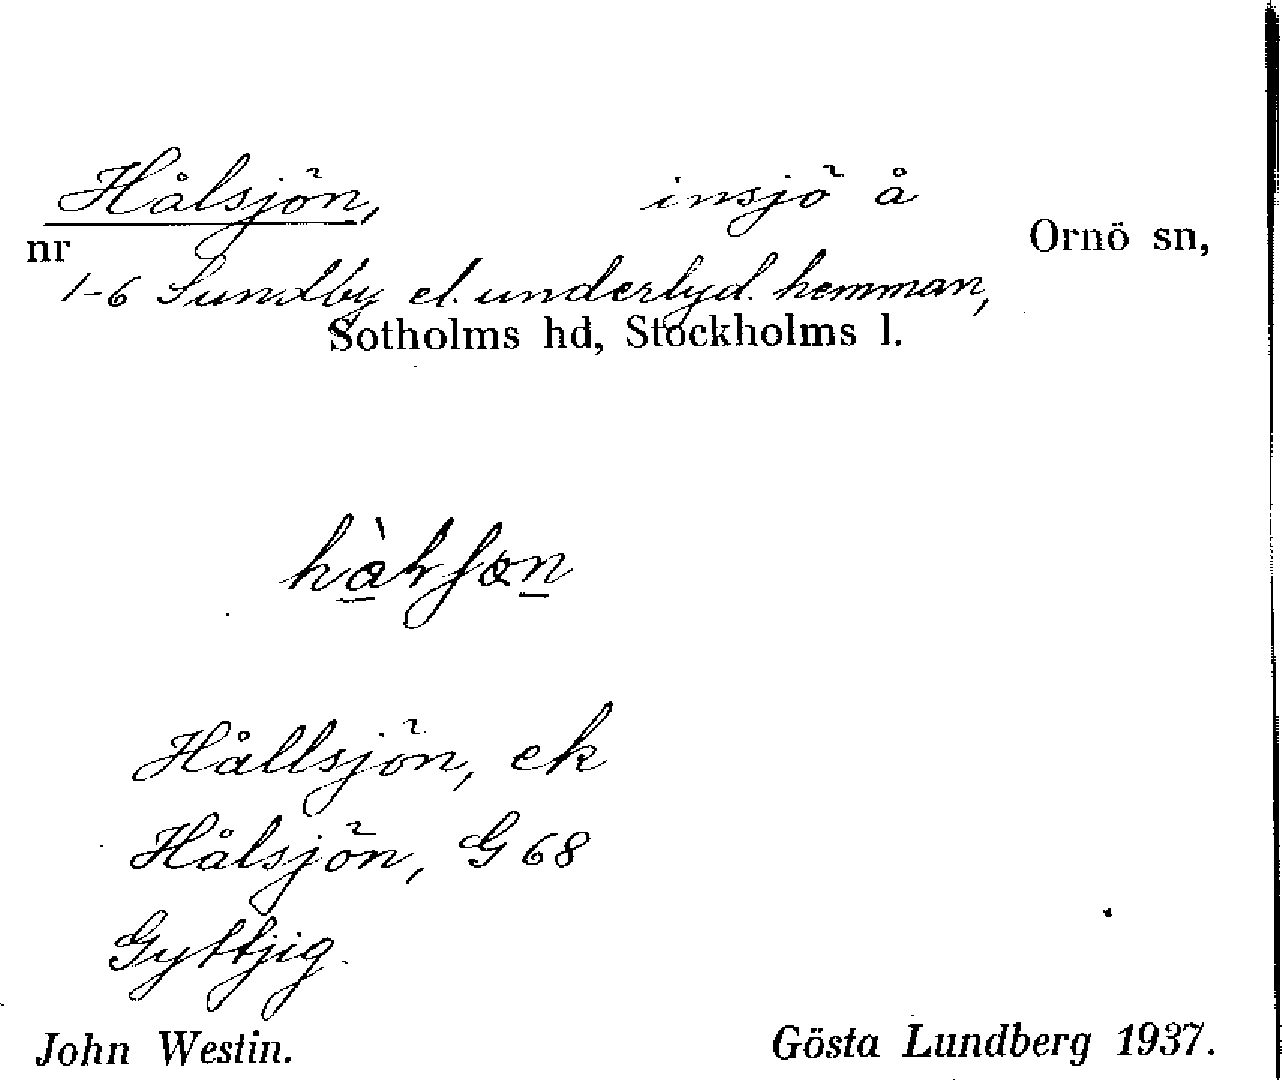 Hålsjön, insjö å
nr Ornö sn,
1-6 Sundby el. underlyd. hemman,
Sotholms hd, Stockholms l.
Hållsjön, ek
Hålsjön, G 68
Gyttjig.
John Westin. Gösta Lundberg 1937.